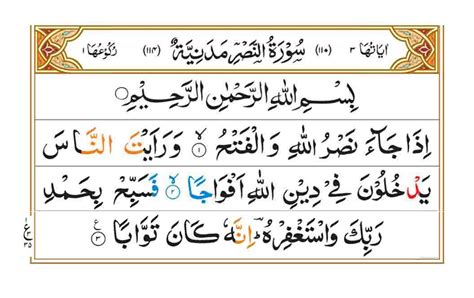 اٰیَاتُهَا ٣ (١١٠) سُوْرَةُ النَّصْرِ مَدَنِيَّةٌ (١١٤) رُكُوْعُهَا ١
بِسْمِ اللهِ الرَّحْمٰنِ الرَّحِيْمِ
اِذَا جَآءَ نَصْرُ اللهِ وَ الْفَتْحُ ۙ١ وَ رَاَيْتَ النَّاسَ
يَدْخُلُوْنَ فِيْ دِيْنِ اللهِ اَفْوَاجًا ۙ٢ فَسَبِّحْ بِحَمْدِ
رَبِّكَ وَ اسْتَغْفِرْهُ ؕ اِنَّهٗ كَانَ تَوَّابًا ٣